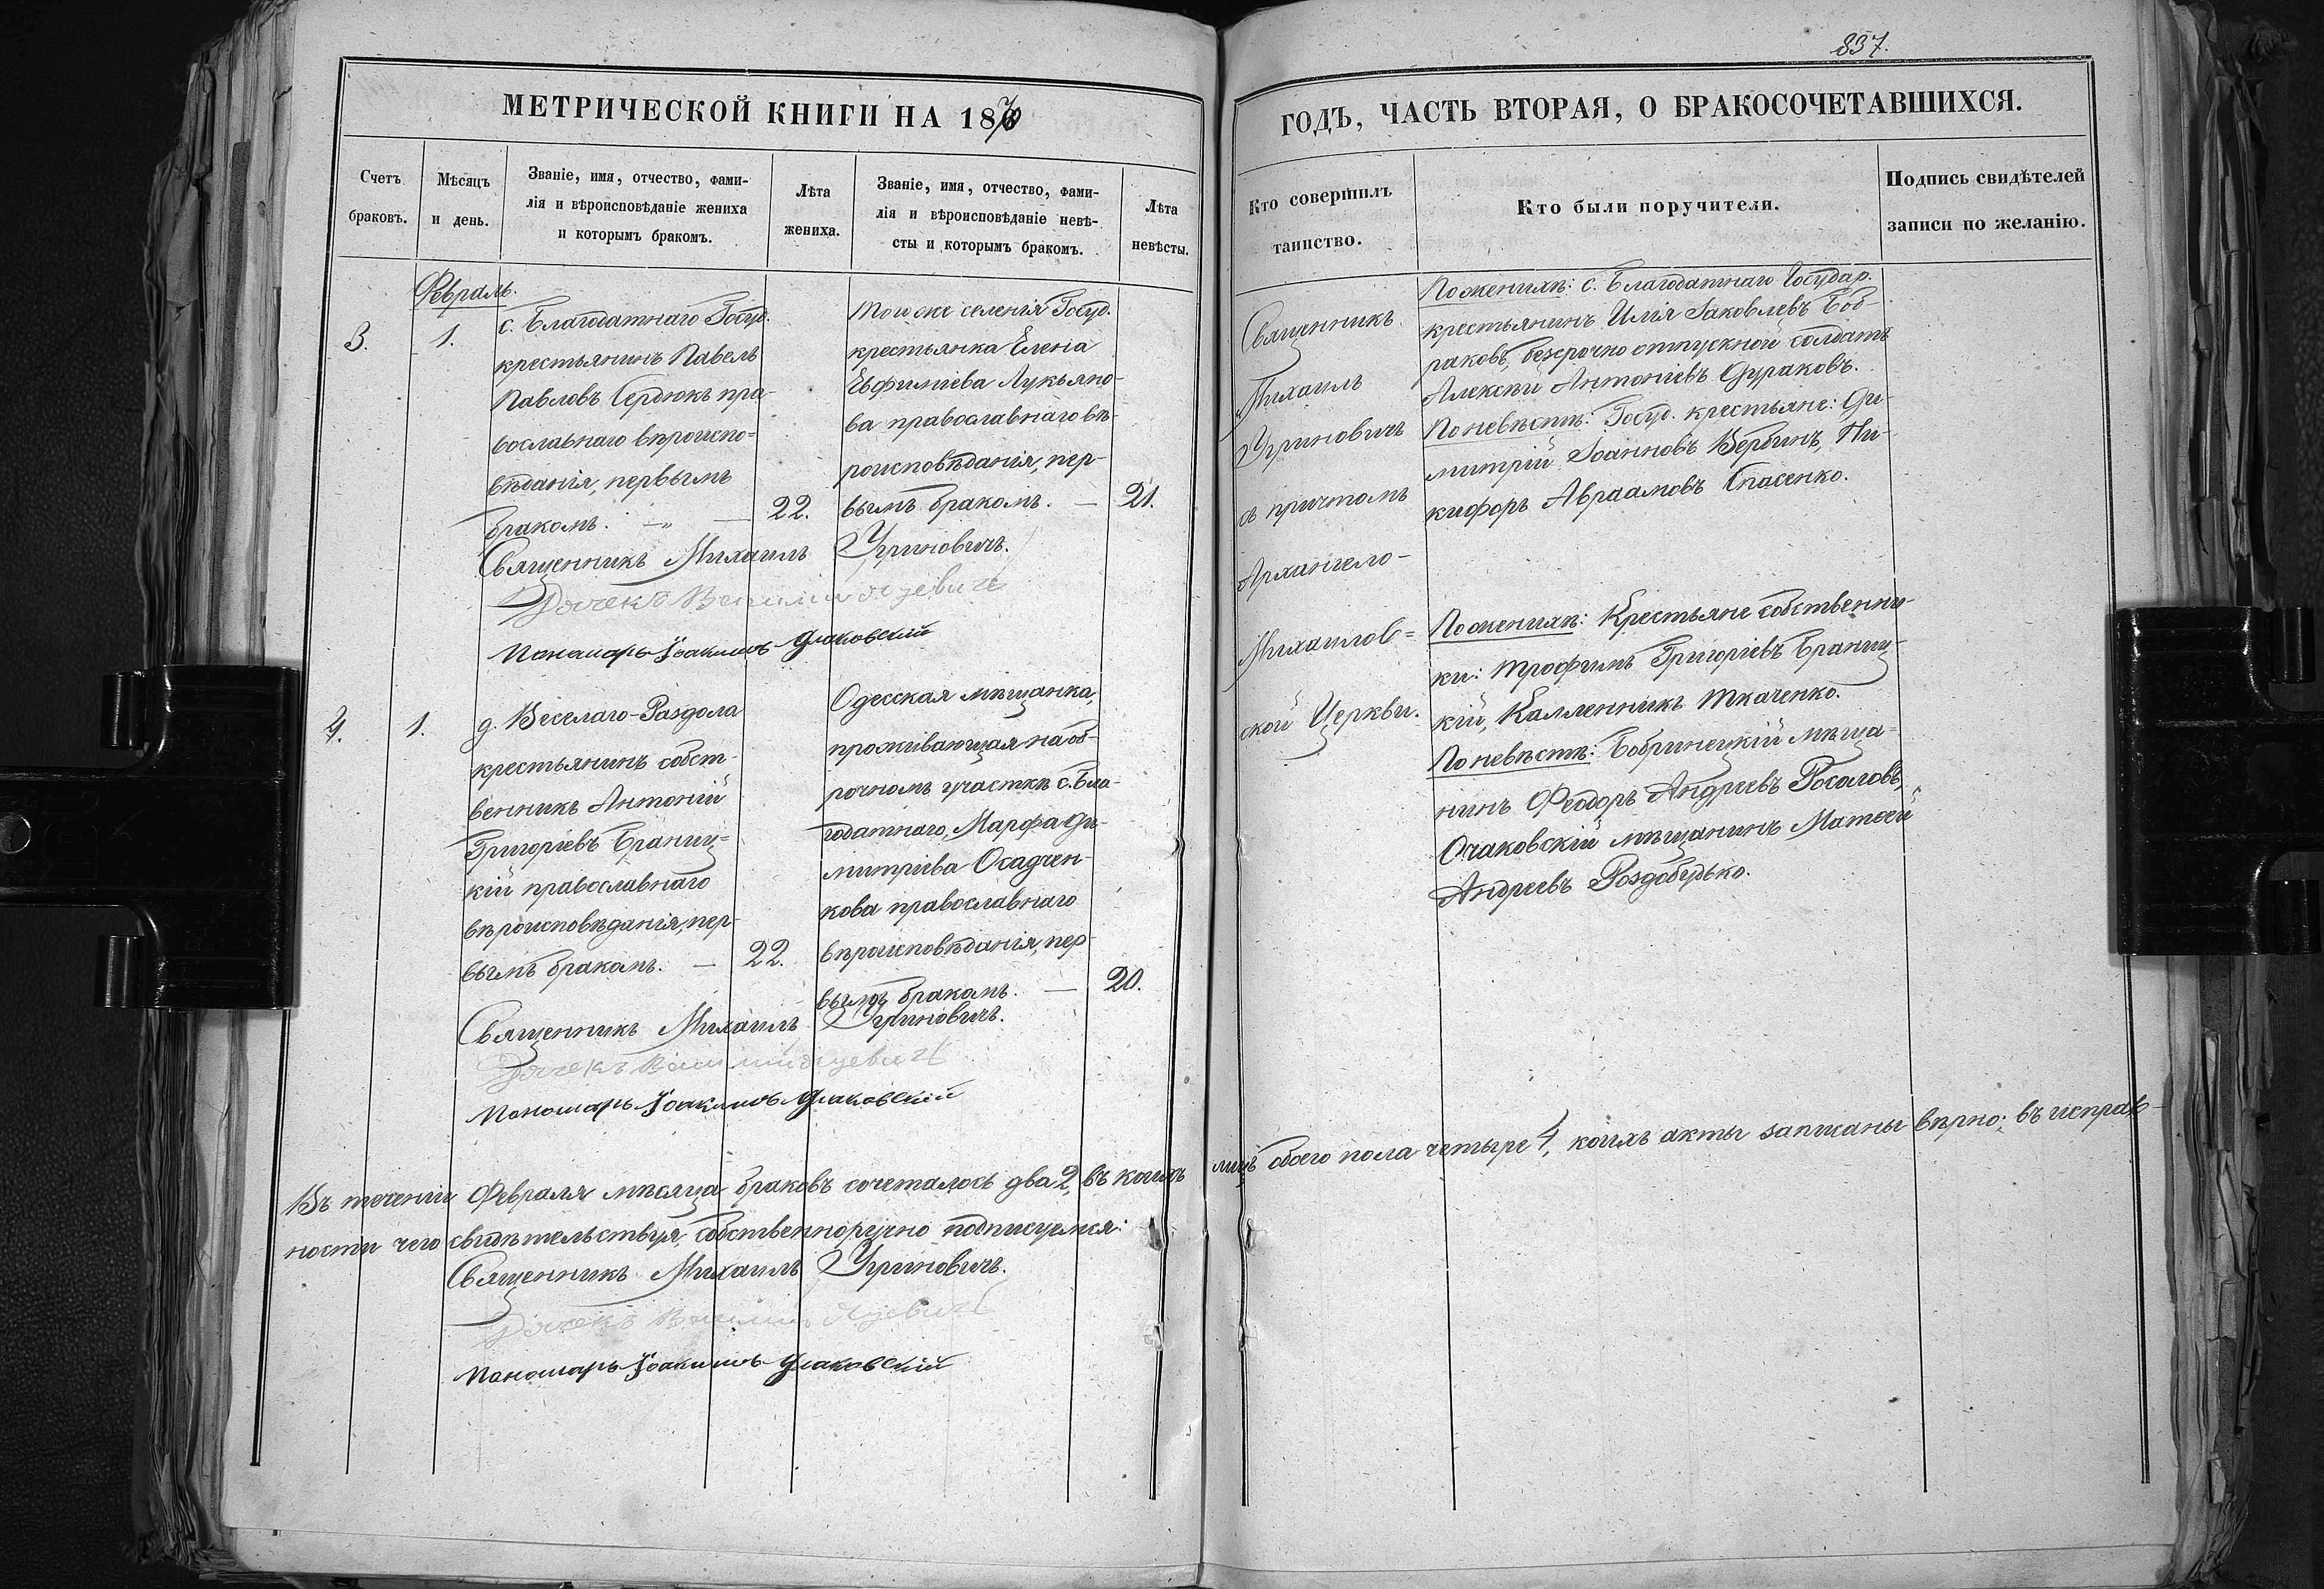 837.
МЕТРИЧЕСКОЙ КНИГИ НА 1870
ГОДЪ, ЧАСТЬ ВТОРАЯ, О БРАКОСОЧЕТАВШИХСЯ.
Счетъ
браковъ.
Мѣсяцъ
и день.
Званіе, имя, отчество, фами-
лія и вѣроисповѣданіе жениха
и которымъ бракомъ.
Лѣта
жениха.
Званіе, имя, отчество, фами-
лія и вѣроисповѣданіе невѣ-
сты и которымъ бракомъ.
Лѣта
невѣсты.
Кто совершилъ
таинство.
Кто были поручители.
Подпись свидѣтелей
записи по желанію.
Февраль.
3.
1.
с. Благодатнаго Госуд.
крестьянинъ Павелъ
Павловъ Сердюкъ пра-
вославнаго вѣроиспо=
вѣданія, первымъ
бракомъ. — „ —
22.
Тойже селенія Госуд.
крестьянка Елена
Евфиміева Лукьяно-
ва православнаго вѣ-
роисповѣданія, пер-
вымъ бракомъ. —
21.
Священникъ Михаилъ Угриновичъ.
Дячекъ
Пономарь Іоакимъ
Священникъ
Михаилъ
Угриновичъ
съ причтомъ
Архангело-
Михаилов=
ской Церкви.
По женихѣ: с. Благодатнаго Государ.
крестьянинъ Илія Іаковлевъ Боб-
раковъ, безсрочно отпускной солдатъ
Алексѣй Антоніевъ Дураковъ.
По невѣстѣ: Госуд. крестьяне: Ди-
митрій Іоанновъ Вербинъ, Ни-
кифоръ Авраамовъ Спасенко.
4.
1.
д. Веселаго-Раздола
крестьянинъ собст-
венникъ Антоній
Григоріевъ Браниц=
кій православнаго
вѣроисповѣданія, пер-
вымъ бракомъ. —
22.
Одесская мѣщанка,
проживающая на об-
рочномъ участкѣ с. Бла-
годатнаго, Марфа Ди-
митріева Осадчен-
кова православнаго
вѣроисповѣданія, пер-
вымъ бракомъ. —
20.
Священникъ Михаилъ Угриновичъ.
Дячекъ
Пономарь Іоакимъ
По женихѣ: Крестьяне собственни-
ки: Трофимъ Григоріевъ Браниц-
кій, Калленникъ Ткаченко.
По невѣстѣ: Бобринецкій мѣща-
нинъ Феодоръ Андреевъ Росаловъ,
Очаковскій мѣщанинъ Матѳей
Андреевъ Роздобудько.
Въ теченіи Февраля мѣсяца браковъ сочеталось два 2, въ коихъ лицъ обоего пола четыре 4, коихъ акты записаны вѣрно; въ исправ-
ности чего свидѣтельствуя, собственноручно подписуемся:
Священникъ Михаилъ Угриновичъ.
Дячекъ
Пономарь Іоакимъ